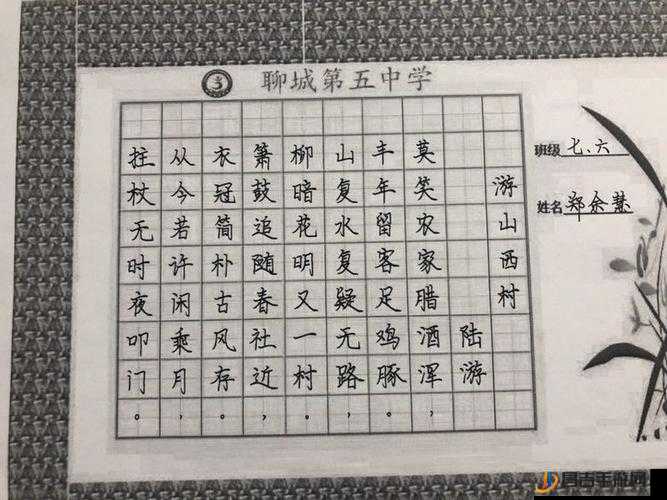 聊城第五中学
游山西村
陆游
莫笑农家腊酒浑,
丰年留客足鸡豚。
山复水复疑无路,
柳暗花明又一村。
箫鼓追随春社近,
衣冠简朴古风存。
从今若许闲乘月,
拄杖无时夜叩门。
班级 七.六
姓名 郑余慧